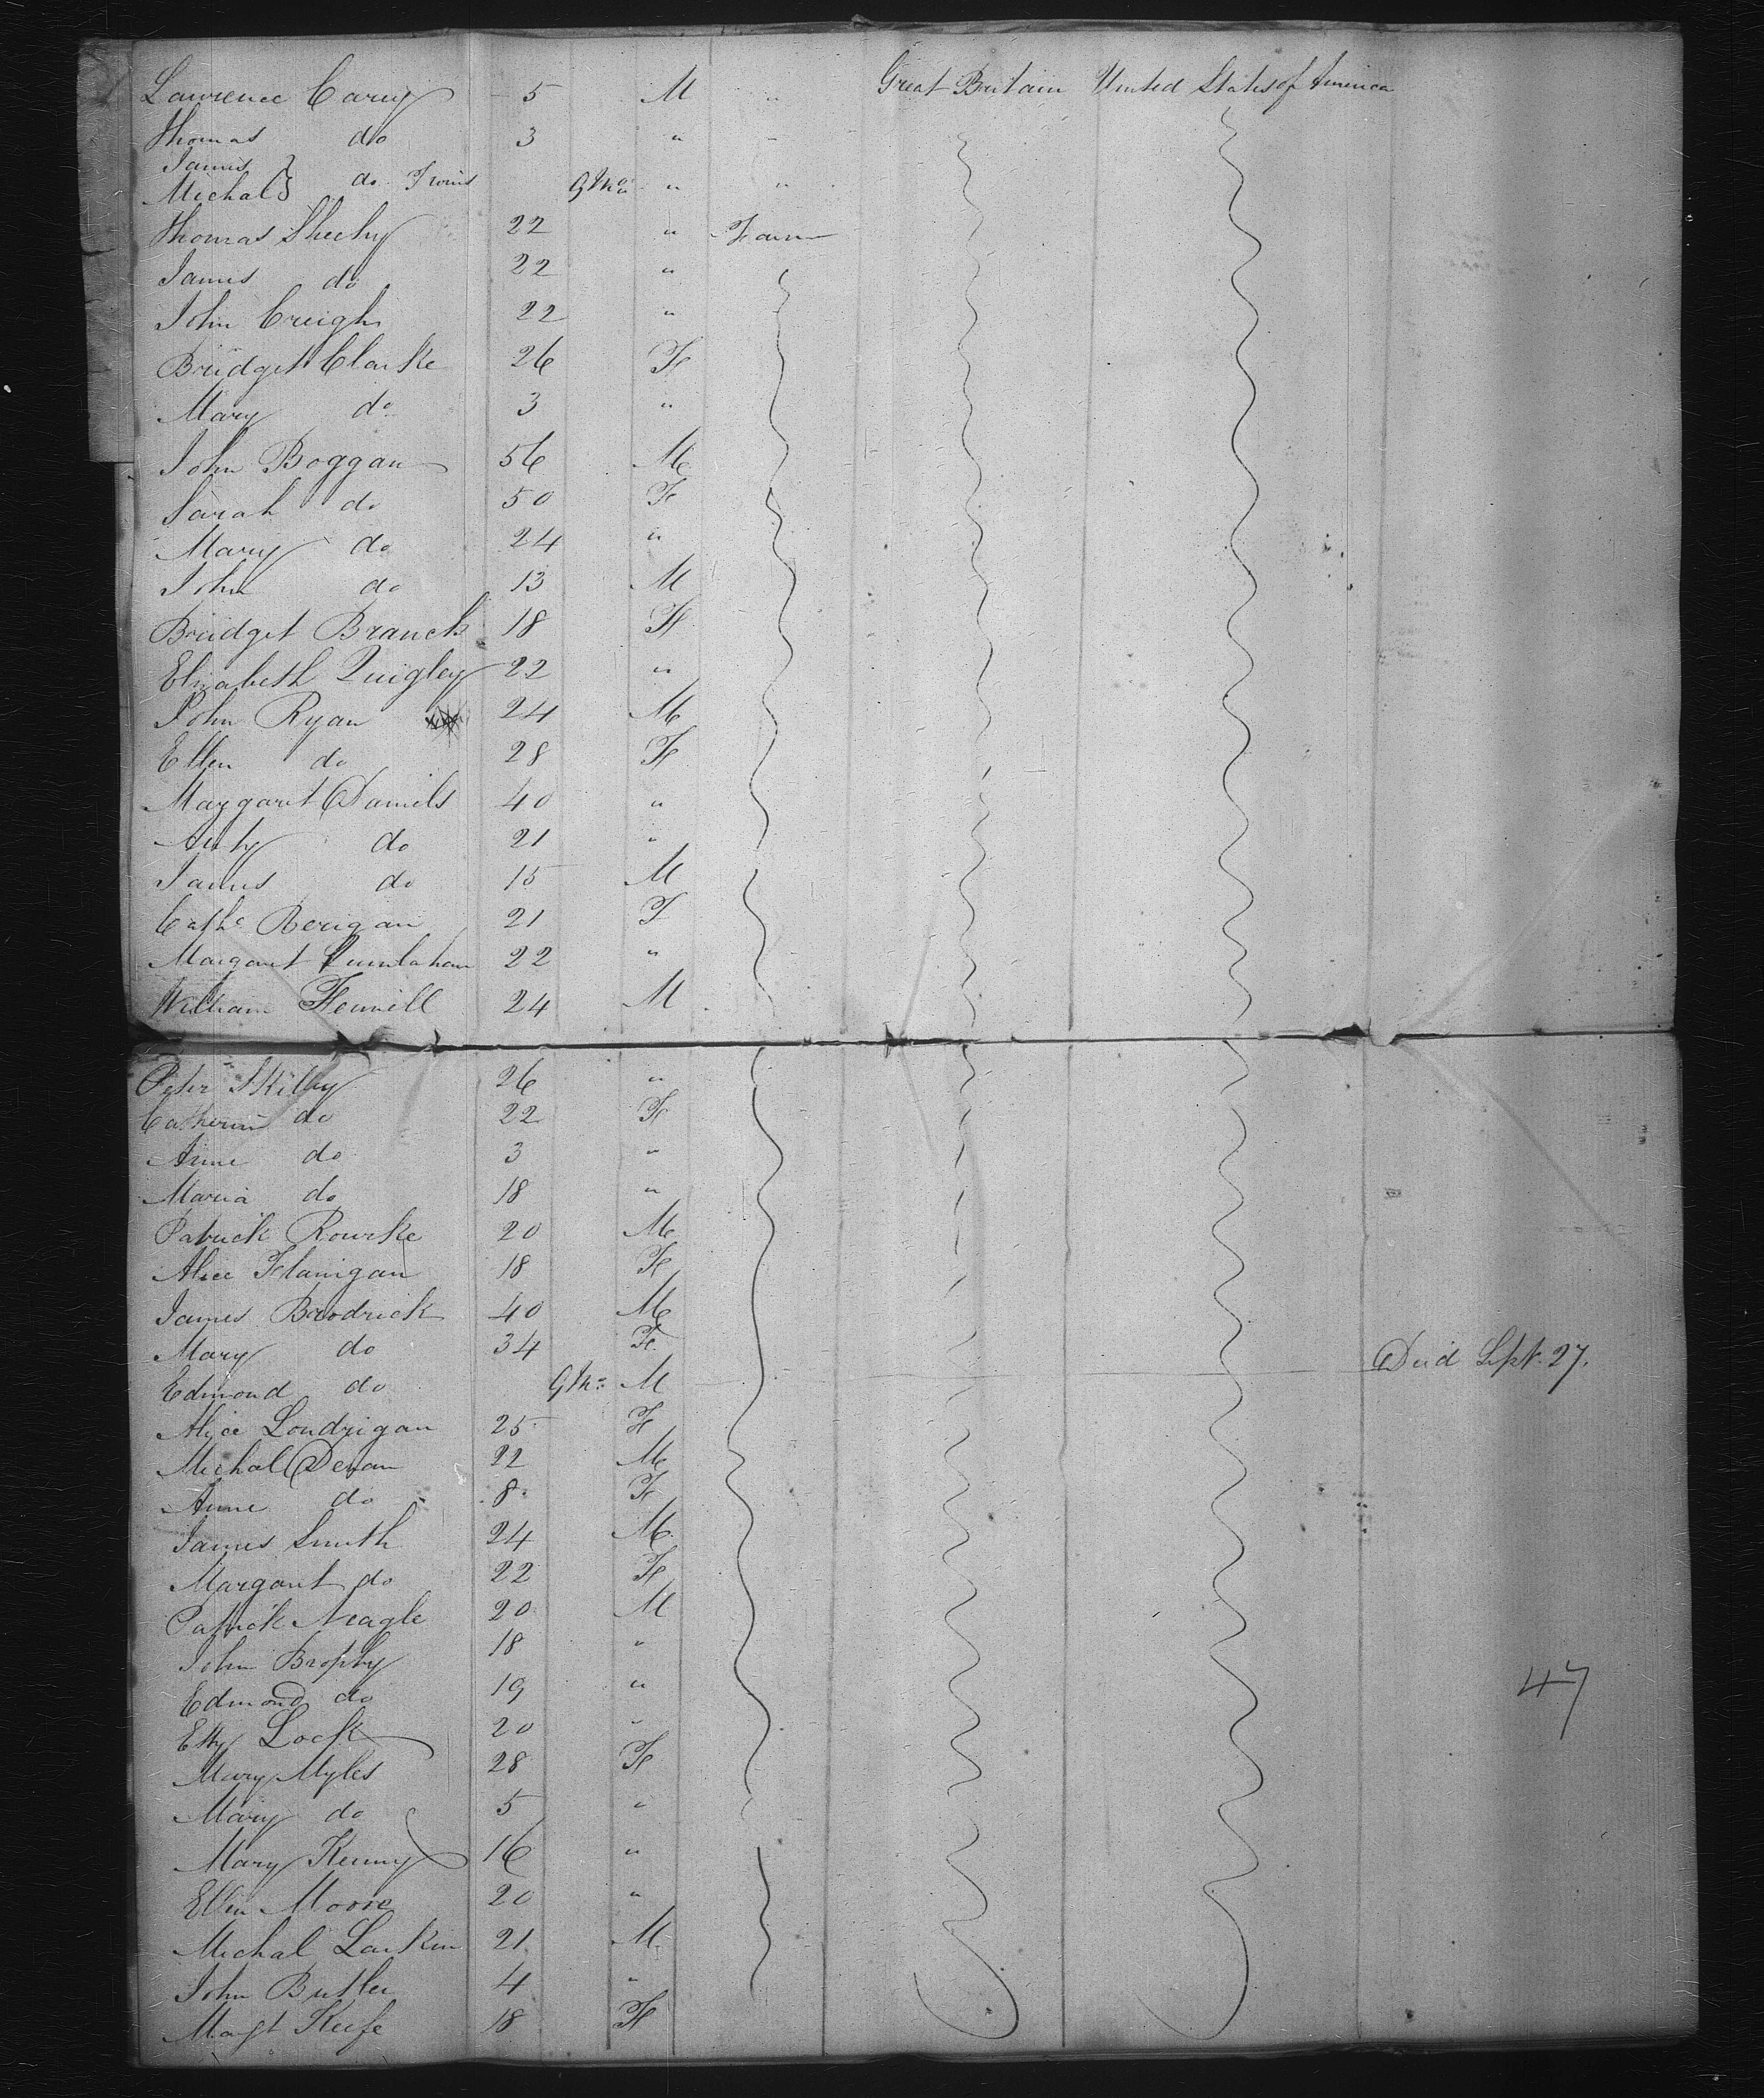 Lawrence Carey 5 M " Great Britain United States of America
Thomas do 3 " "
James
Michal } do Twins 9 Mo " "
Thomas Sheehy 22 " Farm
James do 22 "
John Creigh 22 "
Bridget Clarke 26 F
Mary do 3 "
John Boggan 56 M
Sarah do 50 F
Mary do 24 "
John do 13 M
Bridget Branch 18 F
Elizabeth Quigley 22 "
John Ryan 24 M
Ellen do 28 F
Margaret Daniels 40 "
do 21 "
James do 15 M
Cathe Berigan 21 F
Margaret 22 "
William 24 M
Peter Skilly 26 "
Catherine do 22 F
Anne do 3 "
Maria do 18 "
Patrick Rourke 20 M
Alice Flanigan 18 F
James Brodrick 40 M
Mary do 34 F
Edmond do 9 Mo M Died Sept. 27.
Alice Londrigan 25 F
Michal 22 M
Anne do 8 F
James Smith 24 M
Margaret do 22 F
Patrick Neagle 20 M
John Brophy 18 "
Edmond do 19 "
47
Lock 20 "
Mary Myles 28 F
Mary do 5 "
Mary Kenny 16 "
Ellen Moore 20 "
Michal Larkin 21 M
John Butler 4 "
Margt Keefe 18 F